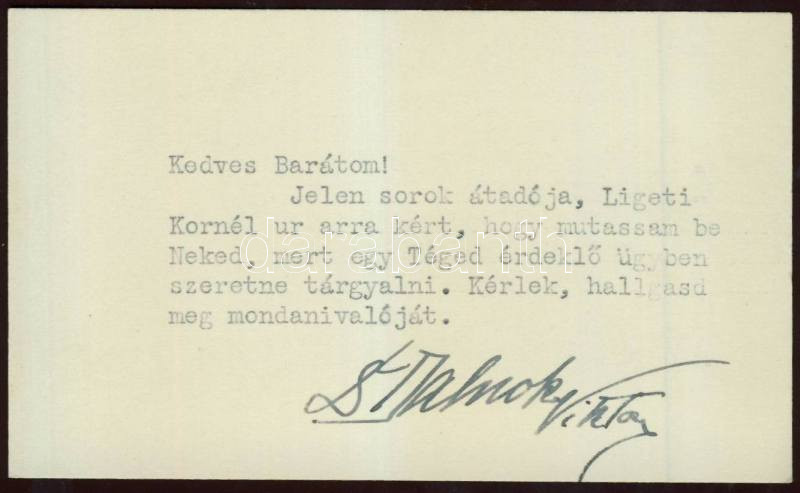 Kedves Barátom!
Jelen sorok átadója, Ligeti
Kornél ur arra kért, hogy mutassam be
Neked, mert egy Téged érdeklő ügyben
szeretne tárgyalni. Kérlek, hallgasd
meg mondanivalóját.
Dr Málnok Viktor
darabanth